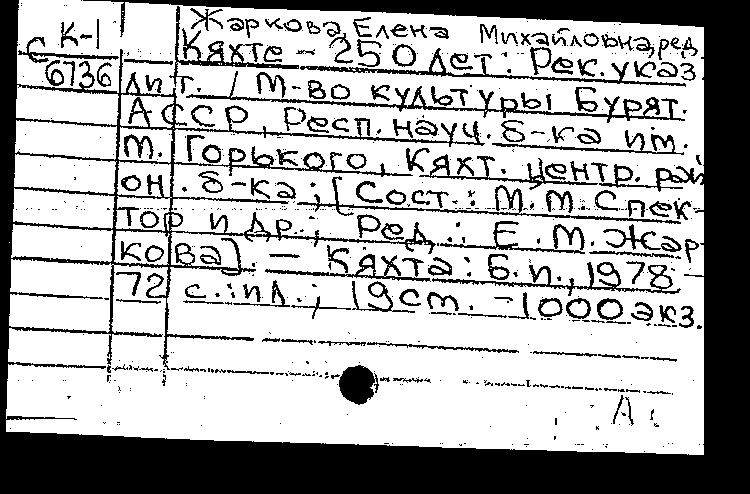 Жаркова, Елена Михайловна, ред.
К-1
С
6736
Кяхте - 250 лет: Рек. указ.
лит. / М-во культуры Бурят.
АССР, Респ. науч. б-ка им.
М. Горького, Кяхт. центр. рай
он. б-ка; [Сост.: М.М. Спек-
тор и др.; Ред.: Е.М. Жар-
кова]. — Кяхта: Б.и., 1978
72 с.: ил.; 19 см. - 1000 экз.
А.